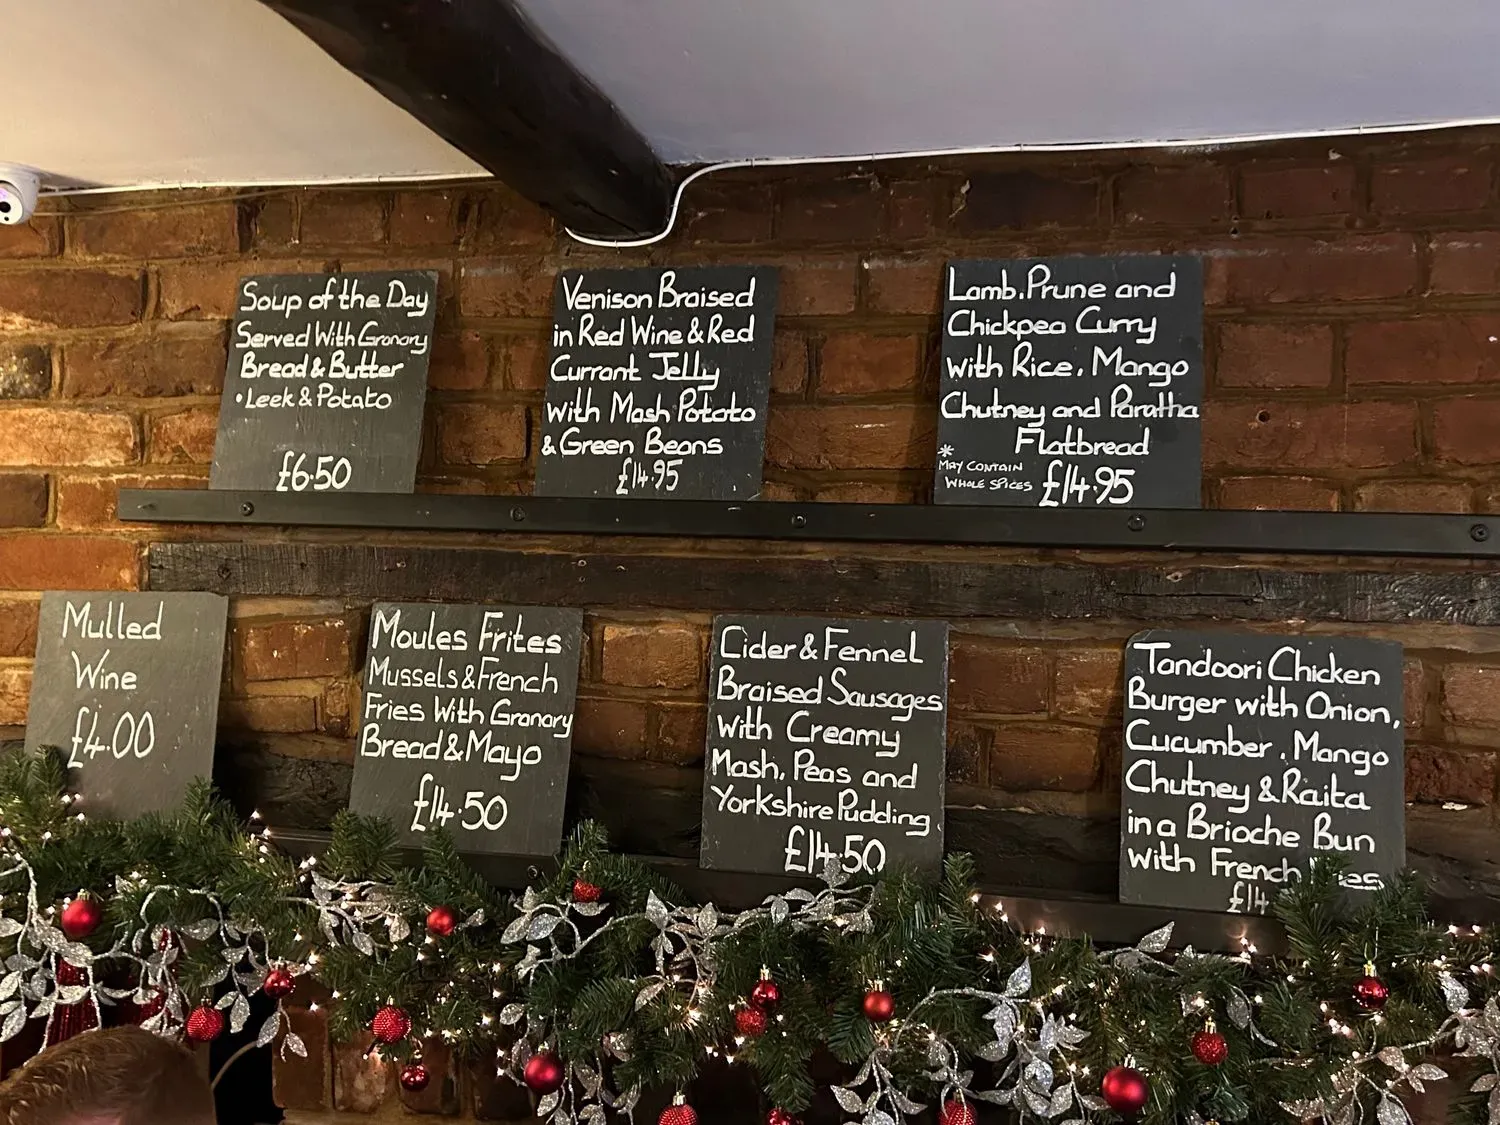 Soup of the Day
Served With Granary
Bread & Butter
• Leek & Potato
£6.50
Venison Braised
in Red Wine & Red
Currant Jelly
with Mash Potato
& Green Beans
£14.95
Lamb, Prune and
Chickpea Curry
with Rice, Mango
Chutney and Paratha
Flatbread
* May Contain
Whole Spices
£14.95
Mulled
Wine
£4.00
Moules Frites
Mussels & French
Fries With Granary
Bread & Mayo
£14.50
Cider & Fennel
Braised Sausages
with Creamy
Mash, Peas and
Yorkshire Pudding.
£14.50
Tandoori Chicken
Burger with Onion,
Cucumber, Mango
Chutney & Raita
in a Brioche Bun
with French
£14